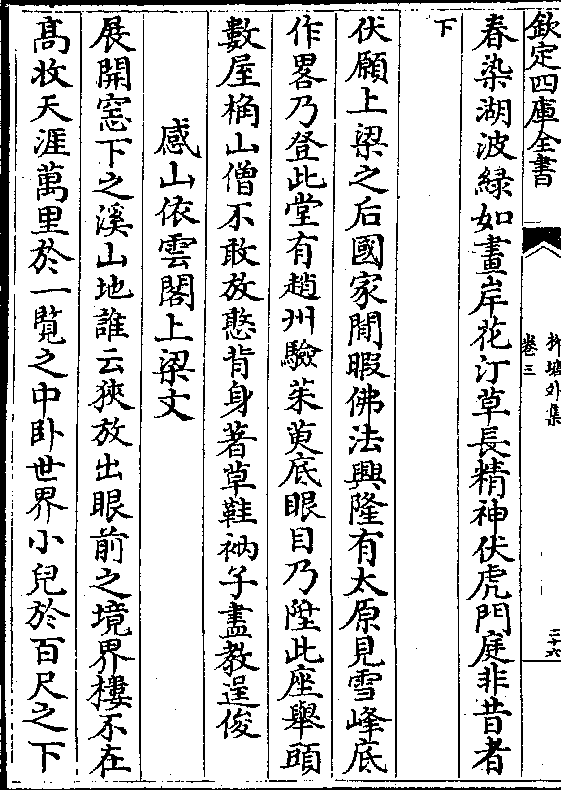 欽定四庫全書
卷三
外集
三十六
春染湖波緑如畫岸花汀草長精神伏虎門庭非昔者
下
伏願上梁之后國家閒暇佛法興隆有太原見雪峰底
作畧乃登此堂有趙州驗茱萸底眼目乃陞此座舉頭
數屋桷山僧不敢放憨肯身著草鞋衲子盡教逞俊
感山依雲閣上梁文
展開窓下之溪山地誰云狹放出眼前之境界樓不在
髙收天涯萬里於一覧之中卧世界小兒於百尺之下